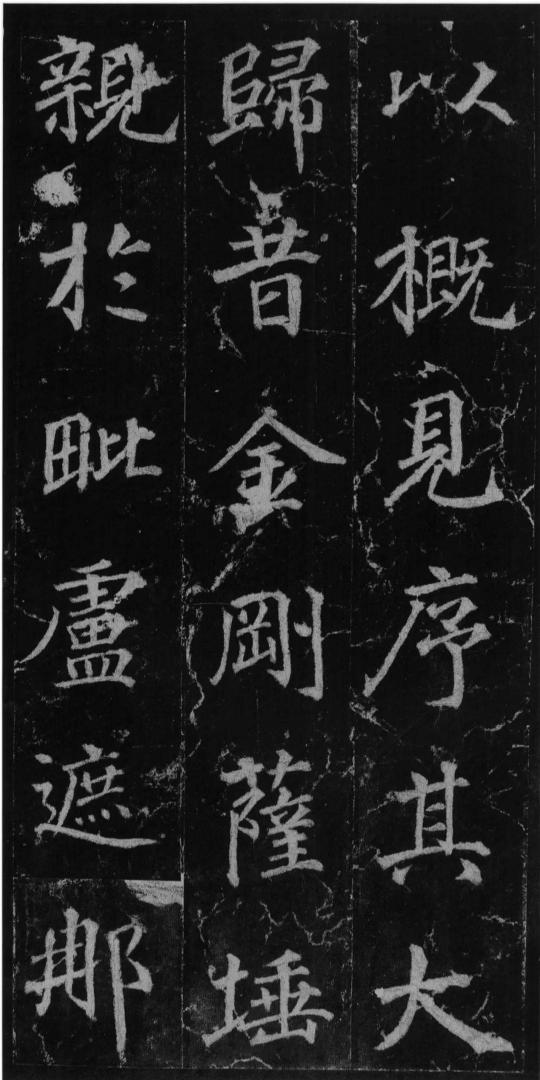 以概見序其大
歸昔金剛薩埵
親於毗盧遮那